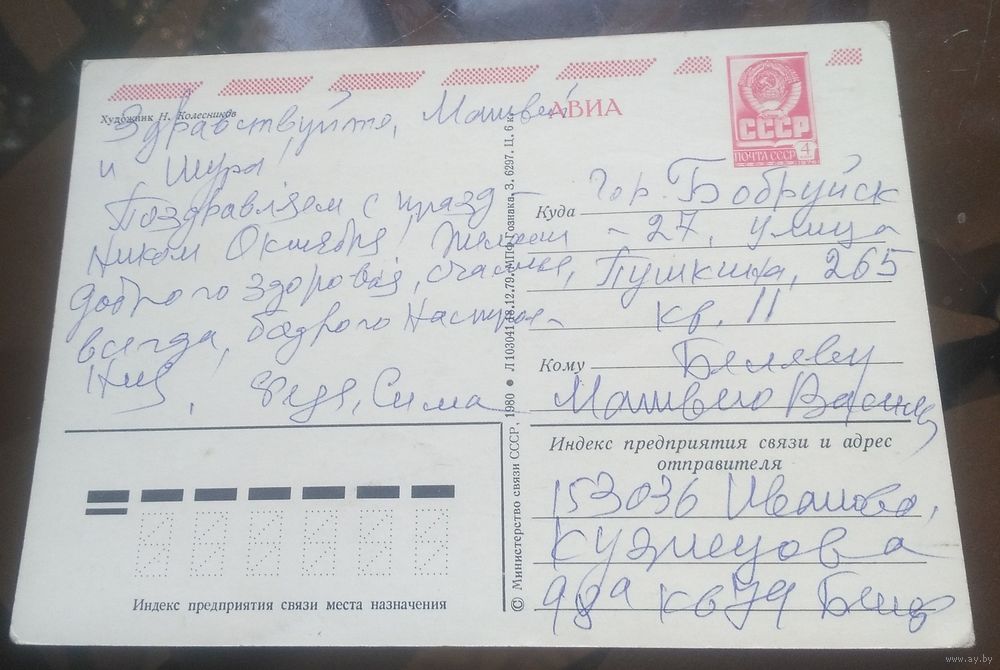 Художник Н. Колесников
АВИА
СССР
ПОЧТА СССР 4
Здравствуйте, Матвей
и Шура!
Поздравляем с празд-
ником Октября, Желаем
доброго здоровья, счастья,
всегда, бодрого настрое-
ния, Федя, Сима
Индекс предприятия связи места назначения
© Министерство связи СССР, 1980 ● Л103041 18.12.79. МПФ Гознака. З. 6297. Ц. 6 к.
Куда гор. Бобруйск
- 27, улица
Пушкина, 265
кв. 11
Кому Беляеву
Матвею Васил
Индекс предприятия связи и адрес
отправителя
153036 Иваново,
Кузнецова
кв 74
www.ay.by